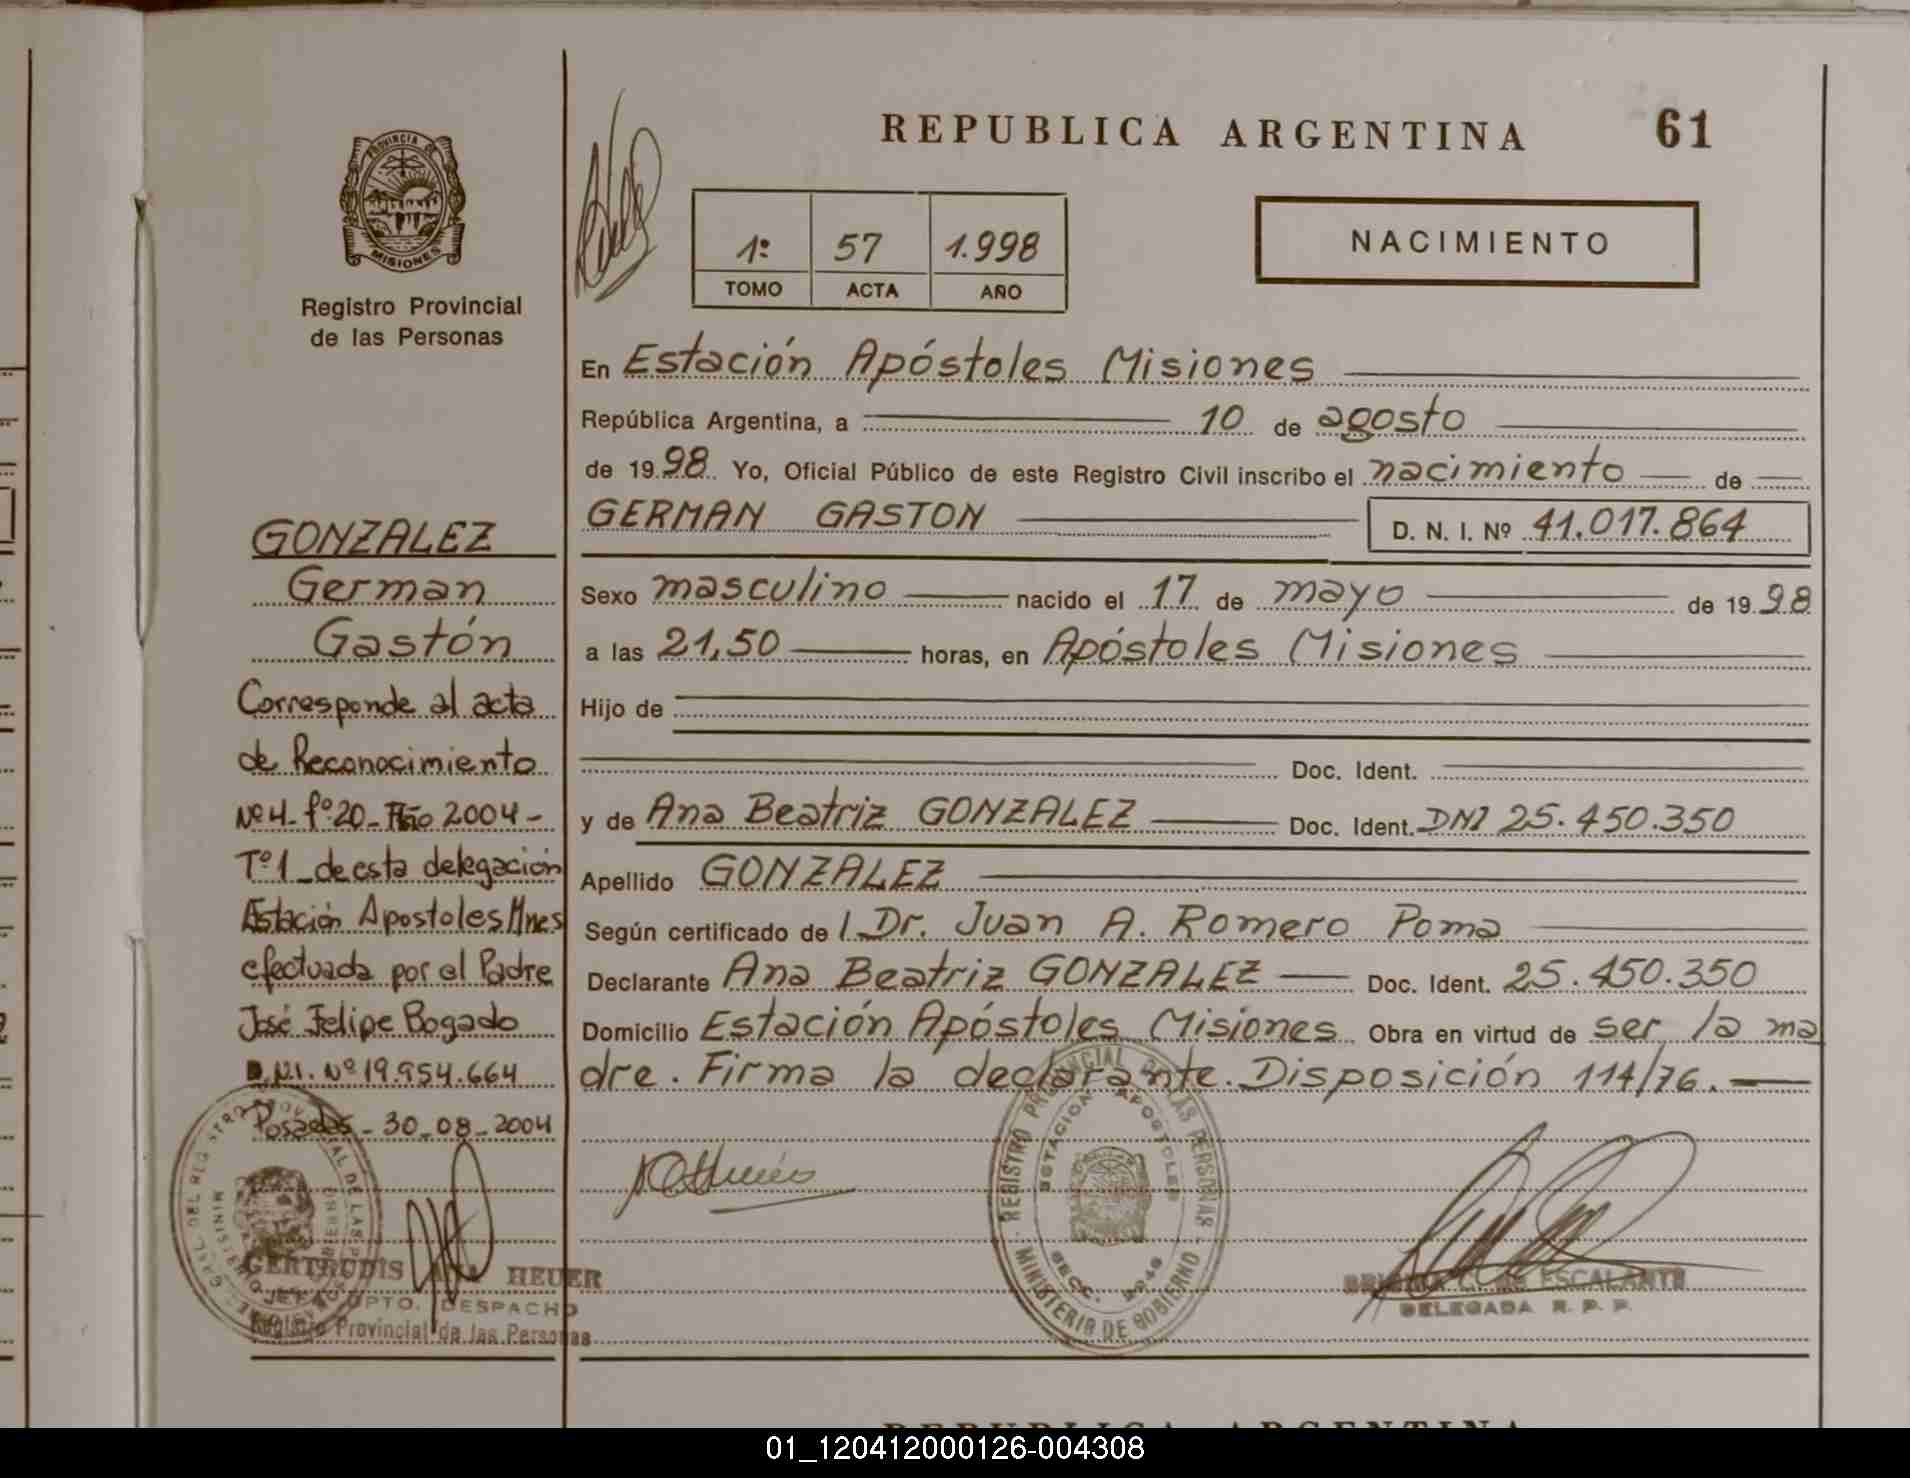 PROVINCIA DE
MISIONES
Registro Provincial
de las Personas
GONZALEZ
German
Gastón
Corresponde al acta
de Reconocimiento
Nº4-fº20-Año 2004-
Tº1_de esta delegación
Estación Apostoles Mnes
efectuada por el Padre
José Felipe Bogado
D.N.I. Nº 19.954.664
Posadas - 30-08-2004
GERTRUDIS HEUER
JEFA DPTO. DESPACHO
Registro Provincial de las Personas
REPUBLICA ARGENTINA 61
1º 57 1.998
TOMO ACTA AÑO
NACIMIENTO
En Estación Apóstoles Misiones
República Argentina, a 10 de agosto
de 1998 Yo, Oficial Público de este Registro Civil inscribo el nacimiento de
GERMAN GASTON D. N. I. Nº 41.017.864
Sexo masculino nacido el 17 de mayo de 1998
a las 21,50 horas, en Apóstoles Misiones
Hijo de
Doc. Ident.
y de Ana Beatriz GONZALEZ Doc. Ident. DNI 25.450.350
Apellido GONZALEZ
Según certificado de l Dr. Juan A. Romero Poma
Declarante Ana Beatriz GONZALEZ Doc. Ident. 25.450.350
Domicilio Estación Apóstoles Misiones Obra en virtud de ser la ma
dre. Firma la declarante. Disposición 114/76.
REGISTRO PROVINCIAL DE LAS PERSONAS
ESTACION APOSTOLES
SECC.
MINISTERIO DE GOBIERNO
ESCALANTE
DELEGADA R. P. P.
REPUBLICA ARGENTINA
01_120412000126-004308